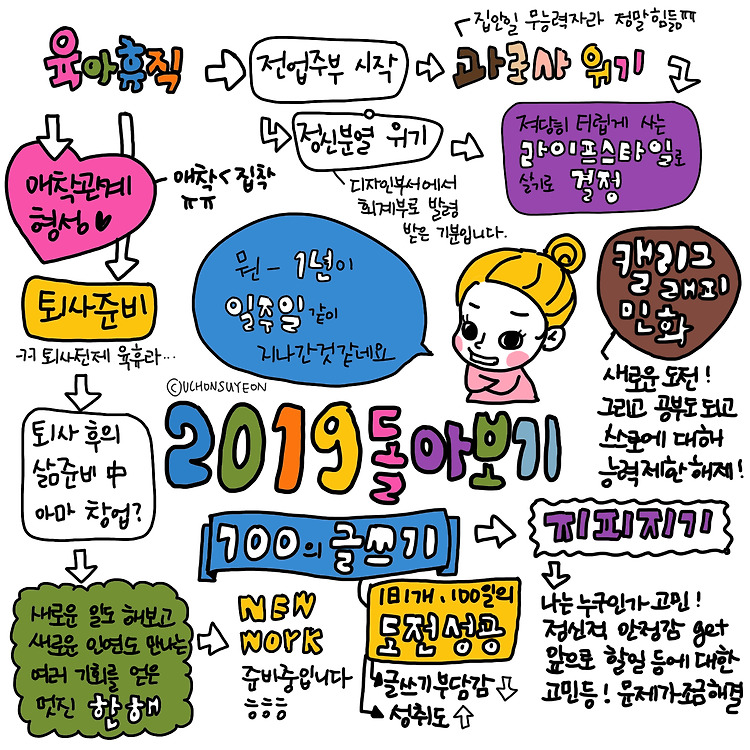 집안일 무능력자라 정말힘듦ㅠㅠ
육아휴직
전업주부 시작
과로사 위기
정신분열 위기
디자인부서에서
회계부로 발령
받은 기분입니다.
적당히 더럽게 사는
라이프스타일로
살기로 결정
애착관계
형성
애착<집착
ㅠㅠ
퇴사준비
ㄱㄱ 퇴사전제 육휴라...
퇴사 후의
삶준비 中
아마 창업?
새로운 일도 해보고
새로운 인연도 만나는
여러 기회를 얻은
멋진 한해
뭔- 1년이
일주일 같이
지나간것같네요
©UCHONSUYEON
2019 돌아보기
캘리그
래피
민화
새로운 도전!
그리고 공부도되고
스스로에 대해
능력제한해제!
100의 글쓰기
1日1개, 100일의
도전성공
글쓰기부담감
성취도
NEW
WORK
준비중입니다
ㅎㅎㅎ
지피지기
나는누구인가 고민!
정신적 안정감 get
앞으로 할일 등에 대한
고민등! 문제가조금해결